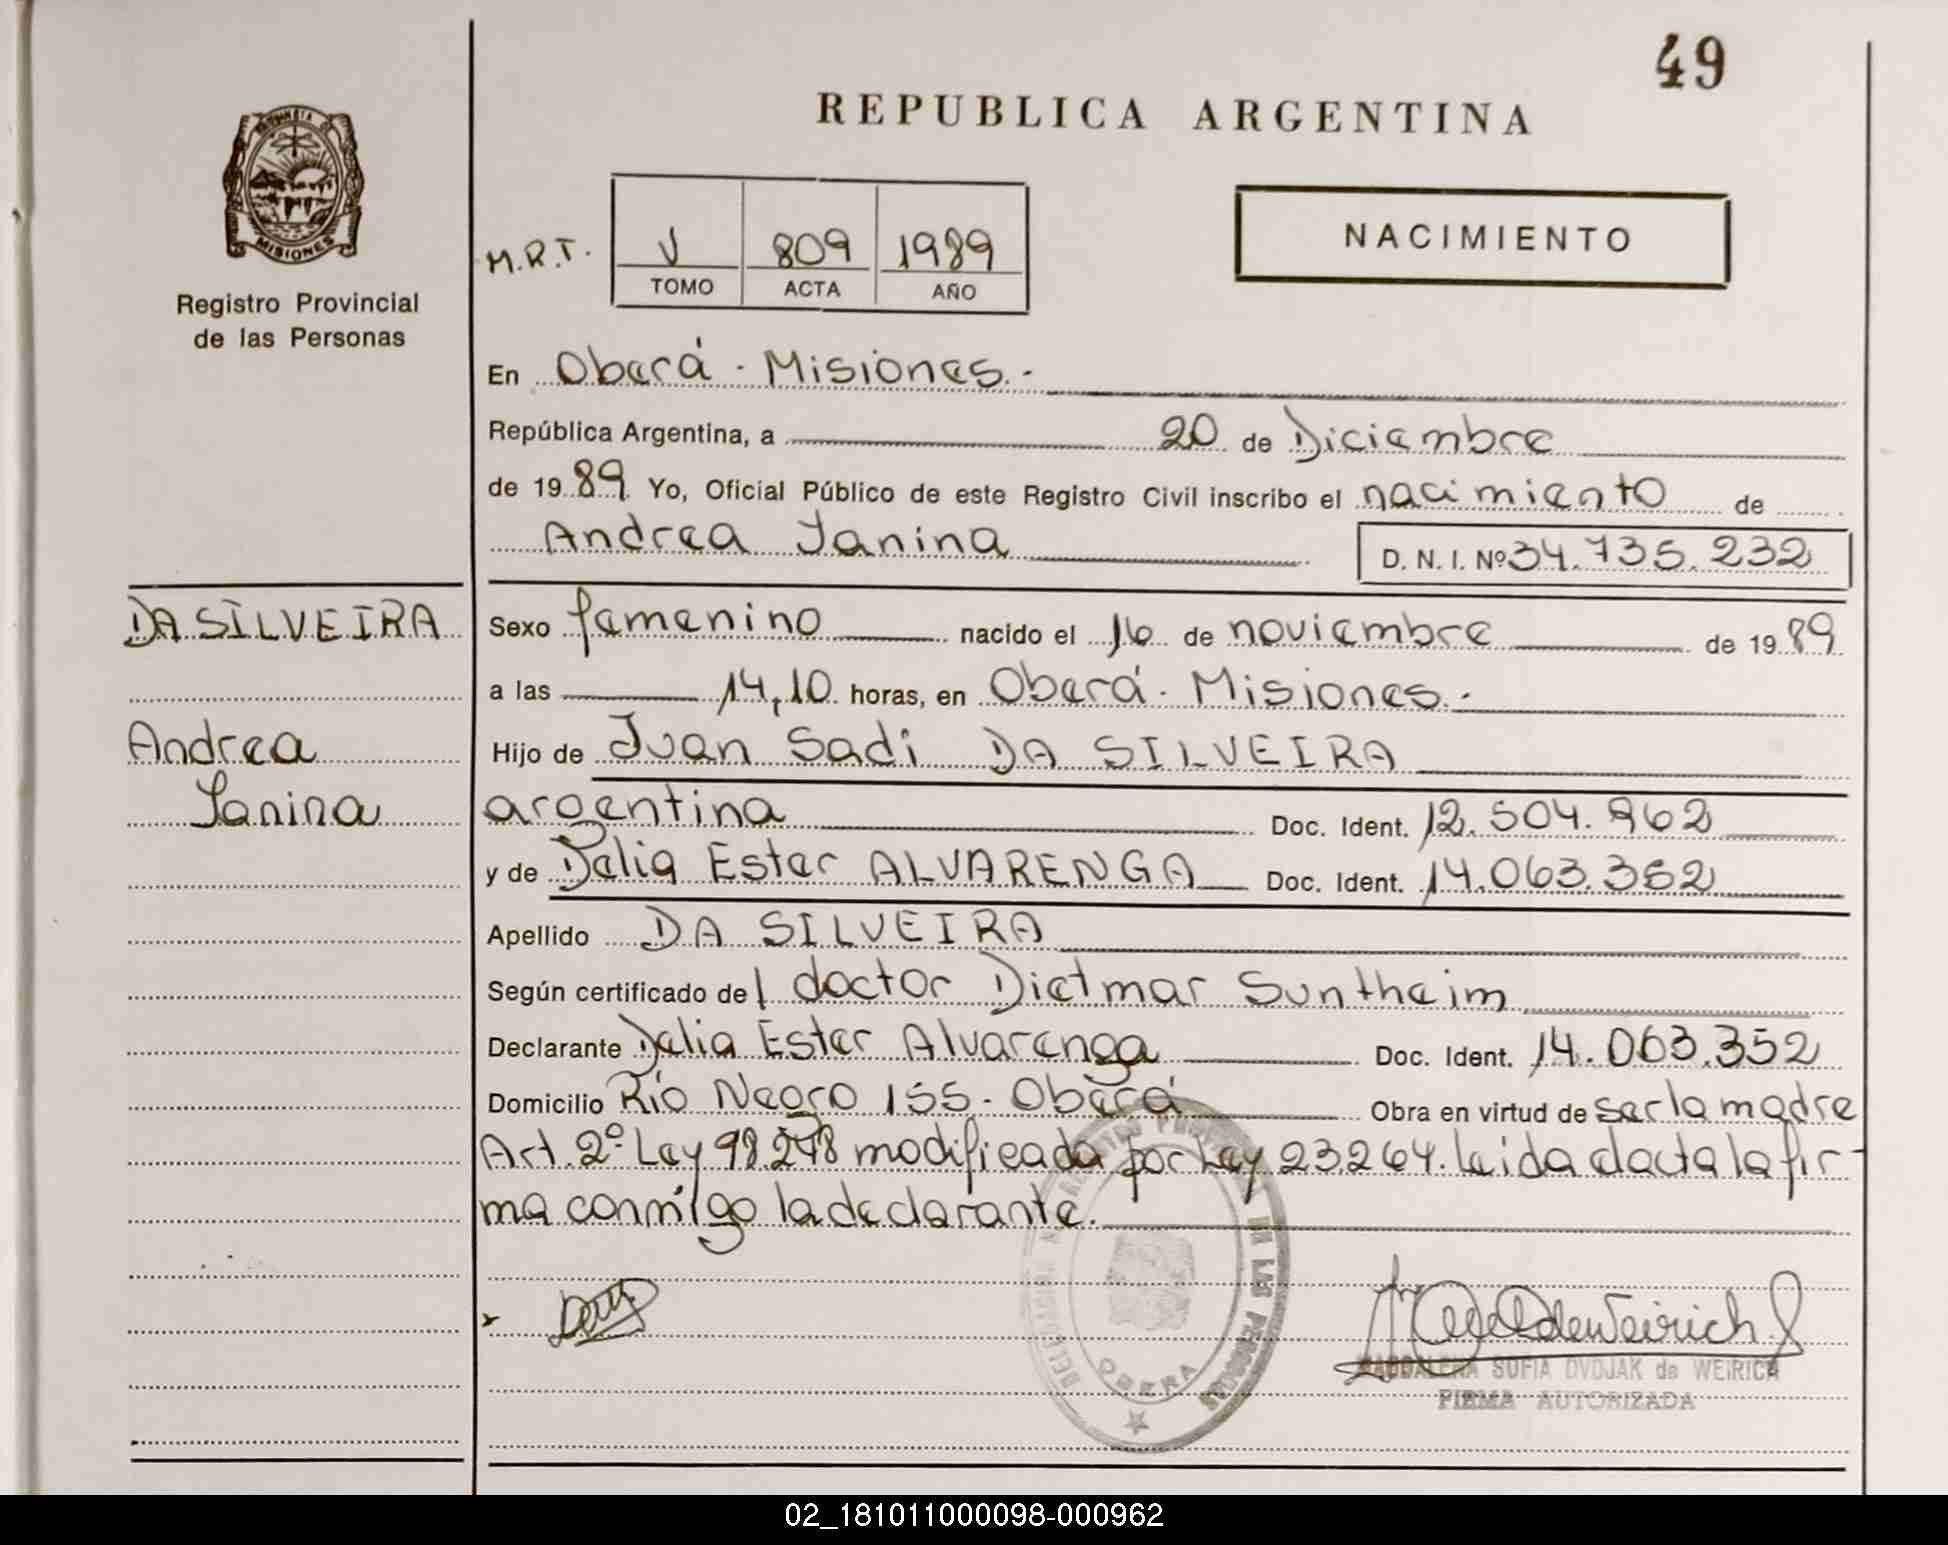 49
REPUBLICA ARGENTINA
MISIONES
Registro Provincial
de las Personas
M.R.T.
V 809 1989
TOMO ACTA AÑO
NACIMIENTO
En Oberá - Misiones.-
República Argentina, a 20 de Diciembre
de 1989. Yo, Oficial Público de este Registro Civil inscribo el nacimiento de
Andrea Yanina
D. N. I. Nº 34.735.232
DA SILVEIRA
Andrea
Yanina
Sexo femenino nacido el 16 de noviembre de 1989
a las 14,10 horas, en Oberá - Misiones.-
Hijo de Juan Sadi DA SILVEIRA
argentina Doc. Ident. 12.504.962
y de Delia Ester ALVARENGA Doc. Ident. 14.063.352
Apellido DA SILVEIRA
Según certificado del doctor Dietmar Suntheim
Declarante Delia Ester Alvarenga Doc. Ident. 14.063.352
Domicilio Río Negro 155 - Oberá Obra en virtud de ser la madre
Art. 2º Ley 98.278 modificada por Ley 23.264. leida el acta la fir-
ma conmigo la declarante.
DELEGACION REGISTRO PROVINCIAL DE LAS PERSONAS
OBERA
MAGDALENA SOFIA DVOJAK de WEIRICH
FIRMA AUTORIZADA
02_181011000098-000962